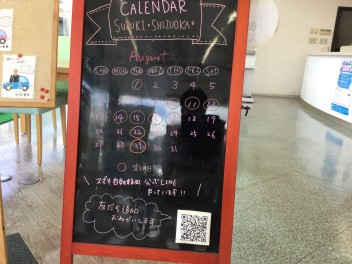 CALENDAR
SUZUKI・SHIZUOKA
August
SUN MON TUE WED THU FRI SAT
1 2 3 4 5
11 12
14 15 16 18 19
20 21 22 24 25 26
27 28 29 30 31
○定休日
スズキ自販静岡 公式LINE
やっています!!
友だち追加
おねがいします